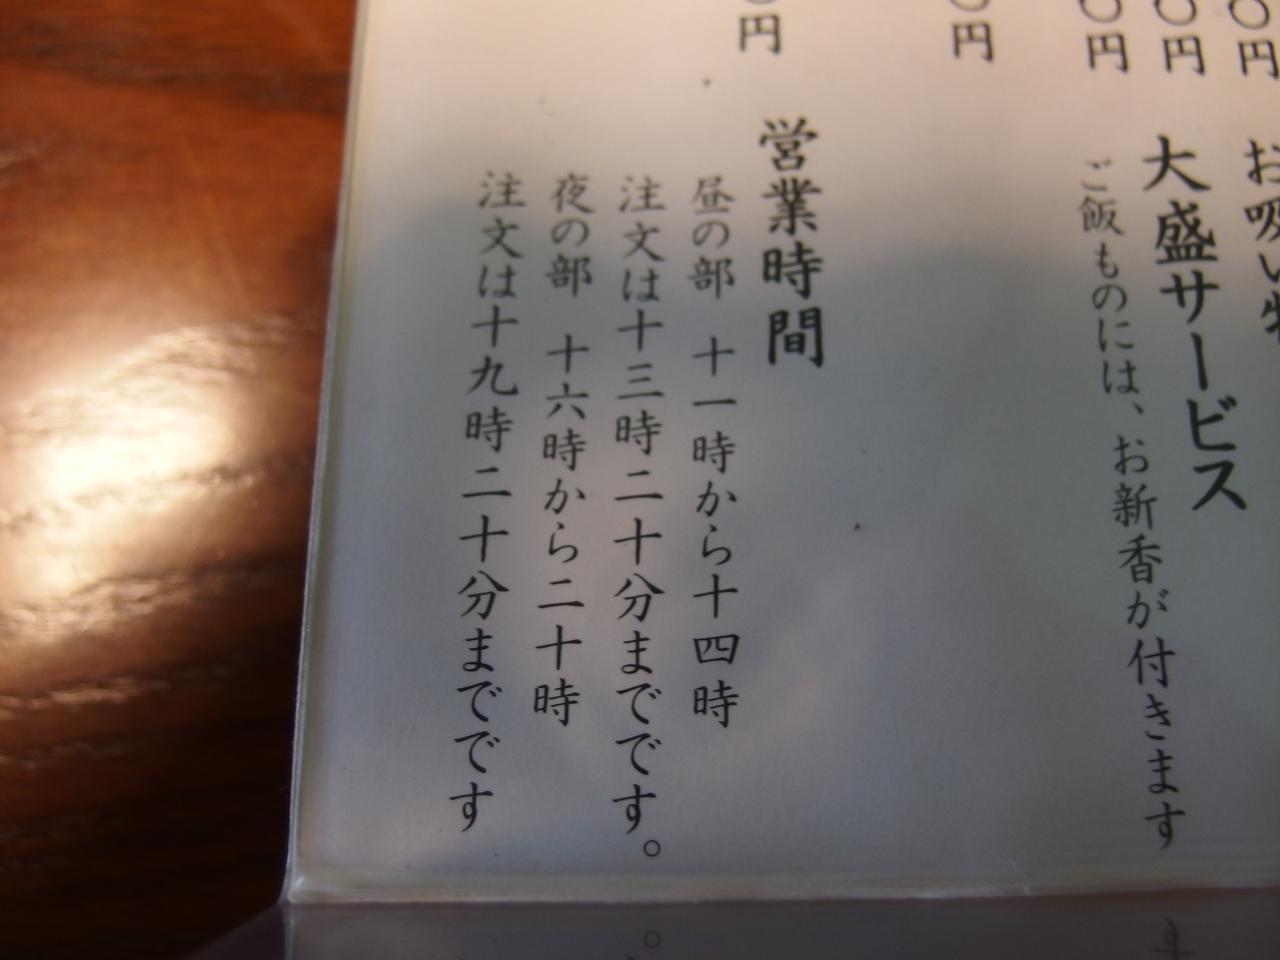 お吸い物
大盛サービス
ご飯ものには、お新香が付きます
〇円
〇円
〇円
〇円
〇円
営業時間
昼の部　十一時から十四時
注文は十三時二十分までです。
夜の部　十六時から二十時
注文は十九時二十分までです